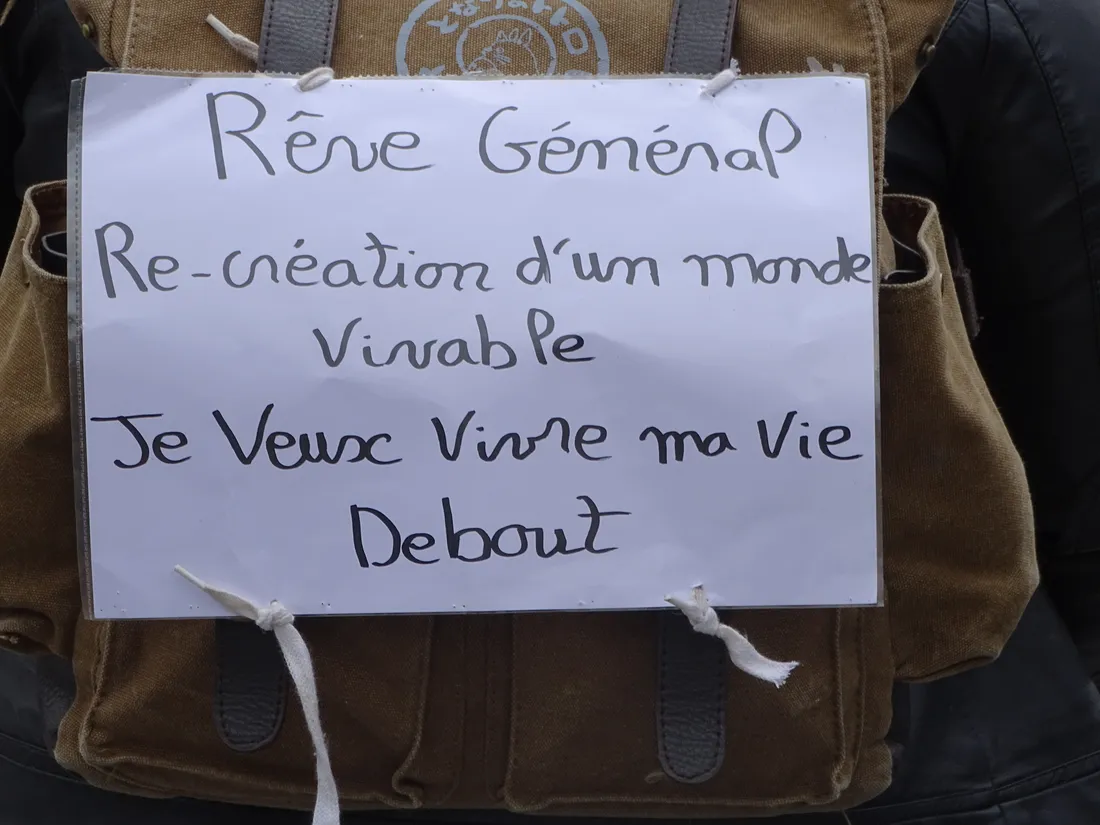 となりのトトロ
Rêve Général
Re-création d'un monde
Vivable
Je Veux Vivre ma Vie
Debout